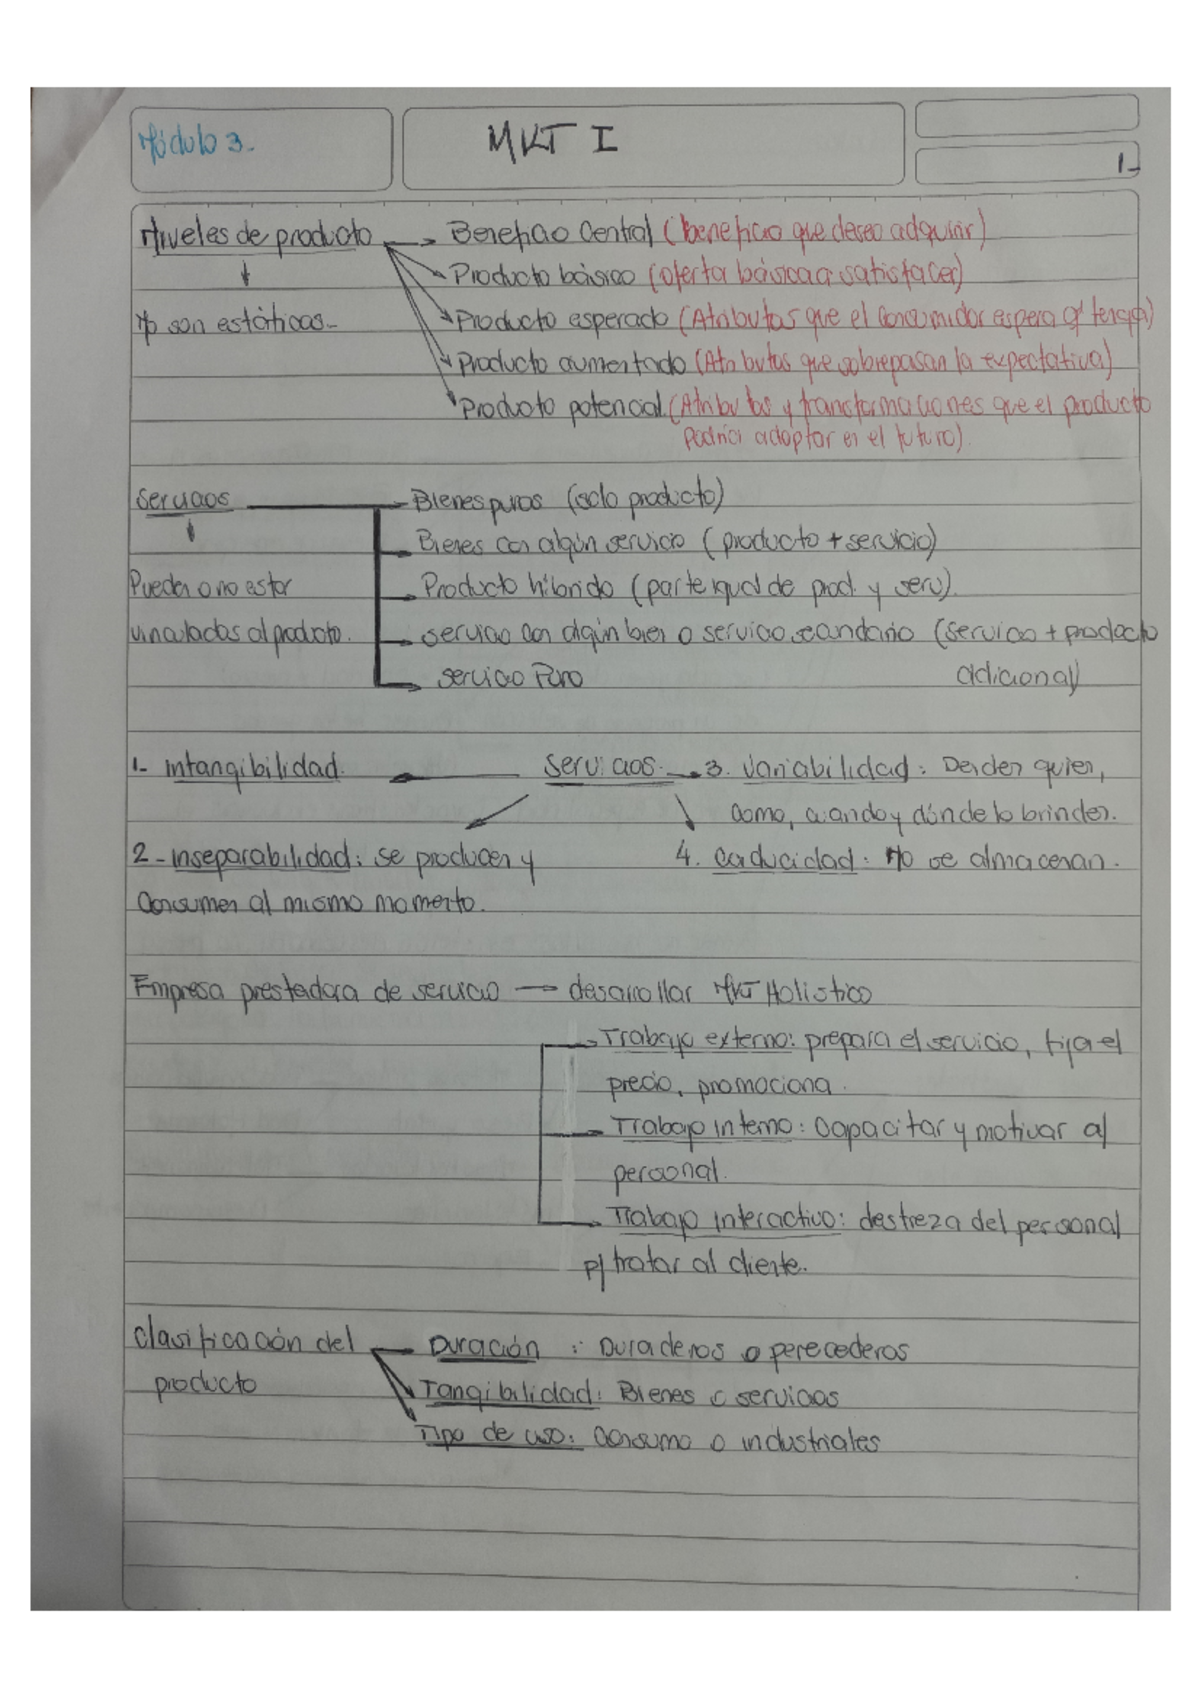 Módulo 3.
MKT I
1-
Niveles de producto → Beneficio Central (beneficio que deseo adquirir)
Producto básico (oferta básica a satisfacer)
No son estáticos. Producto esperado (Atributos que el consumidor espera q' tenga)
Producto aumentado (Atributos que sobrepasan la expectativa)
Producto potencial (Atributos y transformaciones que el producto
podría adoptar en el futuro).
Servicios Bienes puros (solo producto)
Bienes con algún servicio (producto + servicio)
Pueden o no estar Producto híbrido (parte igual de prod. y serv).
vinculados al producto. servicio con algún bien o servicio secundario (servicio + producto
servicio Puro adicional)
1- intangibilidad. Servicios. 3. Variabilidad: Dependen quien,
como, cuando y dónde lo brinden.
2- inseparabilidad: se producen y 4. caducidad: No se almacenan.
Consumen al mismo momento.
Empresa prestadora de servicio → desarrollar MKT Holístico
Trabajo externo: prepara el servicio, fija el
precio, promociona.
Trabajo interno: Capacitar y motivar al
personal.
Trabajo interactivo: destreza del personal
p/ tratar al cliente.
Clasificación del Duración: Duraderos o perecederos
producto Tangibilidad: Bienes o servicios
Tipo de uso: Consumo o industriales